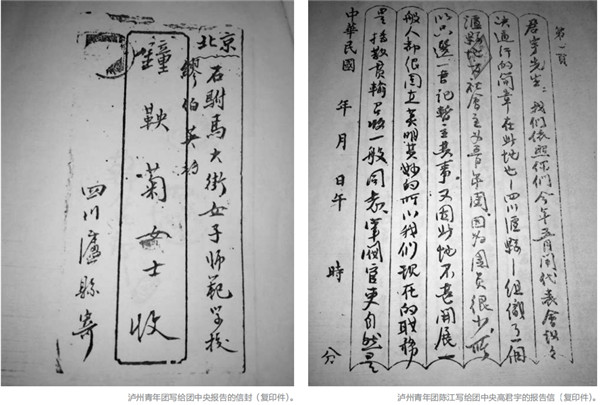 北京
石駙馬大街女子師範学校
繆伯英
鐘鞅菊女士收
四川瀘縣寄
第一頁
君宇先生：我們依照你們今年五月間代表會議々
决通行的简章在此地也—四川瀘縣—組織了一個
瀘縣地方社會主义青年團因为團员很少，所
以只選一書记暫主其事。又因此地不甚開展一
般人都很莫明其妙的所以我們現在的職務
是教育一般同志。軍閥官吏自然是
中華民國 年 月 日午 時 分
泸州青年团写给团中央报告的信封（复印件）。
泸州青年团陈江写给团中央高君宇的报告信（复印件）。